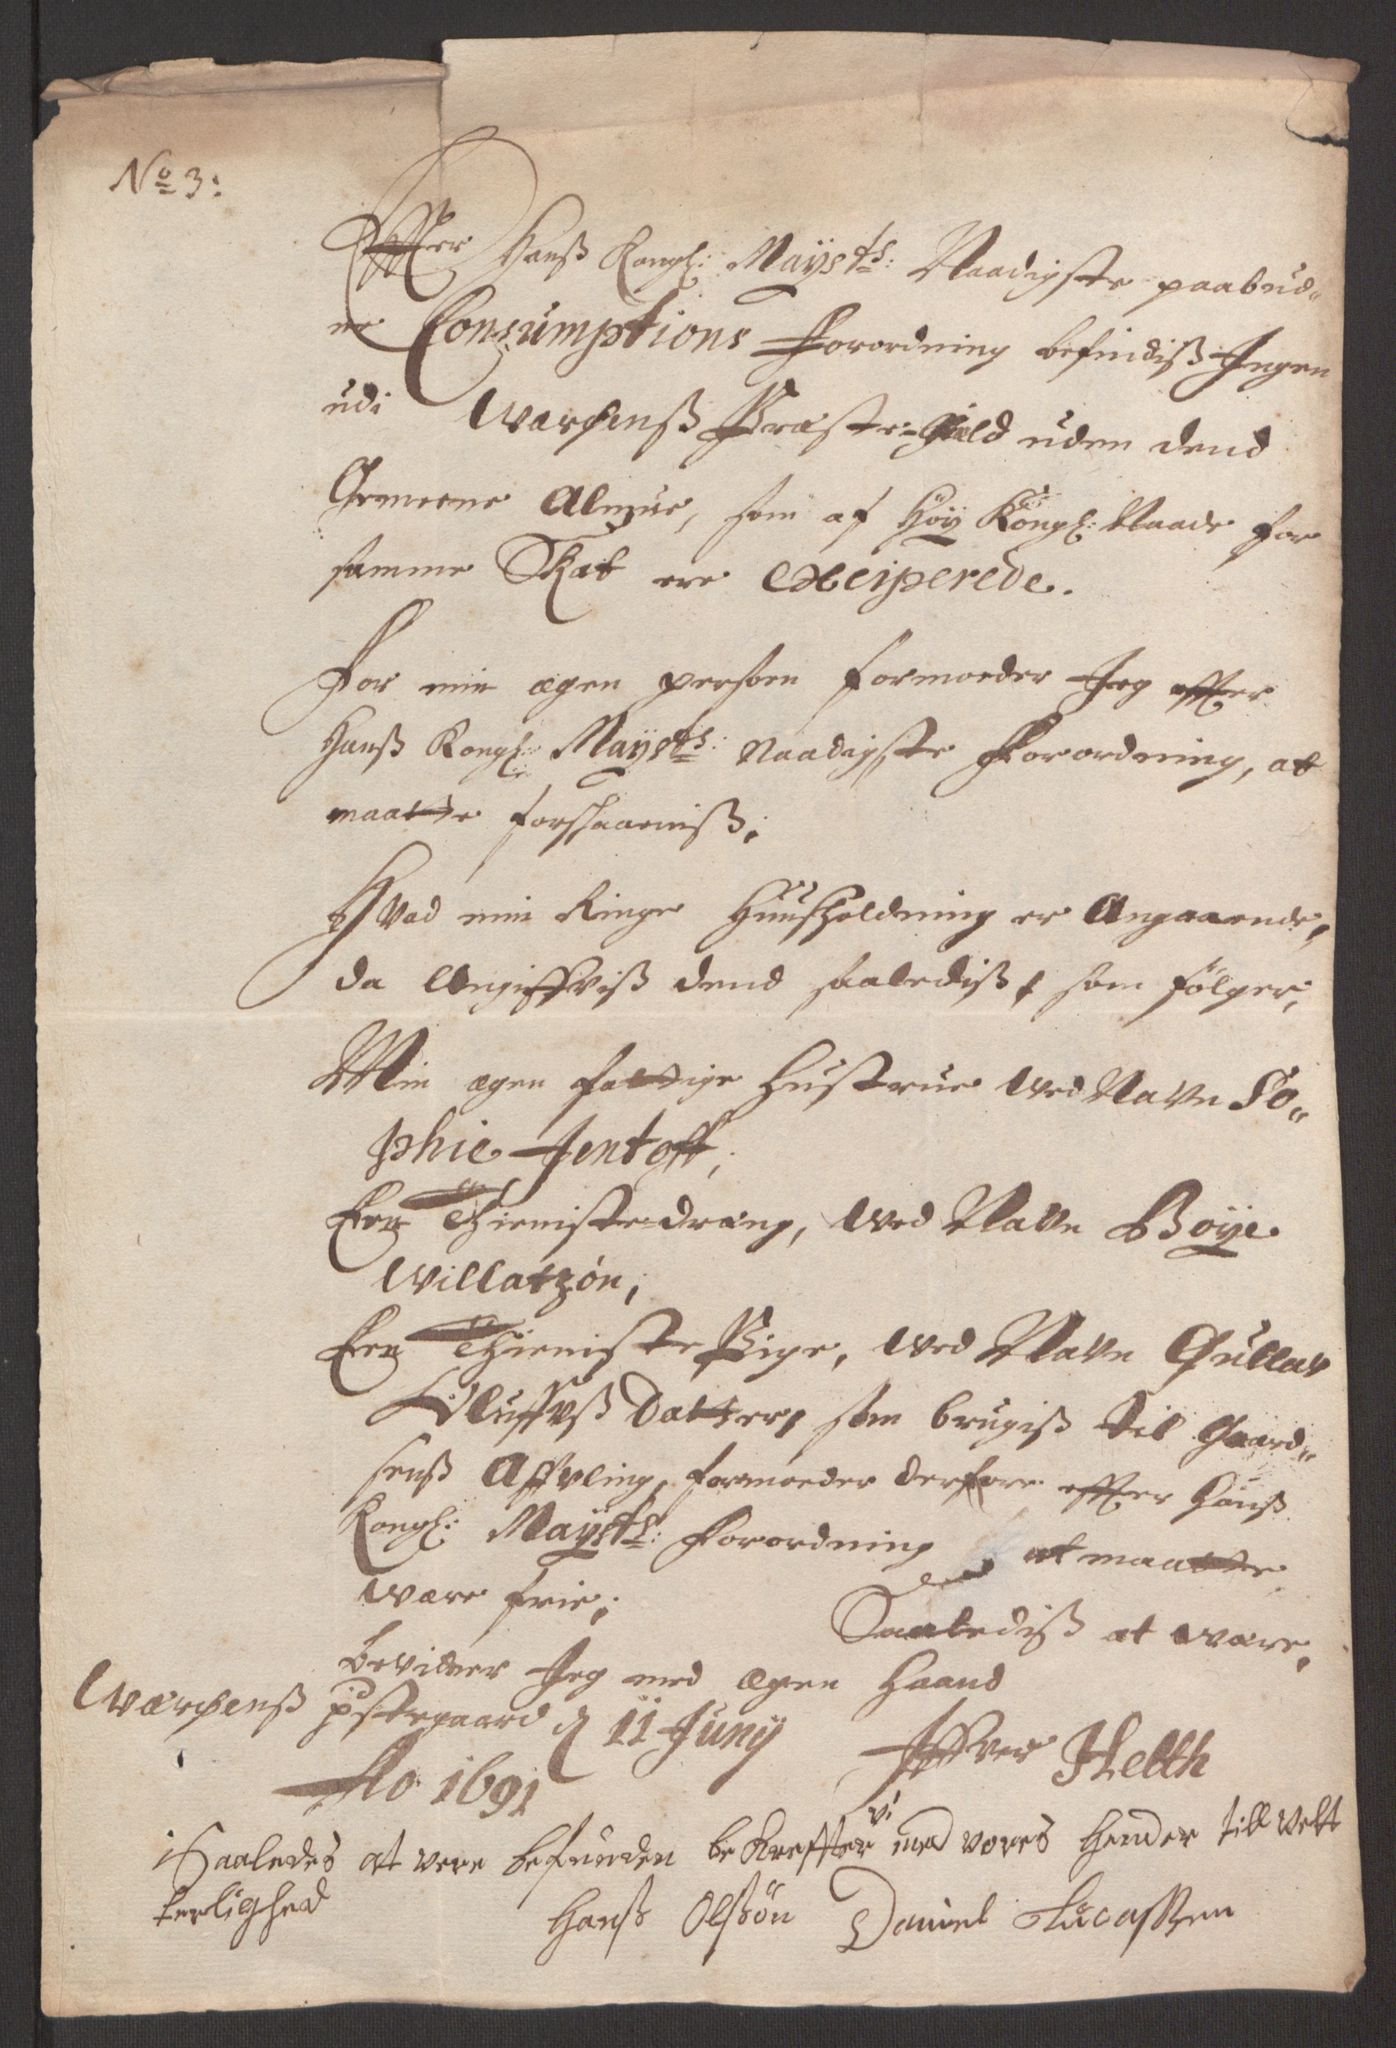 No 3:
Effter Hanß Kongl: Mayst:s Naadigste paabud-
ne Consumptions Forordning befindiß Ingen
udi Warhenß Præste-Gield uden dend
Gemeene Almue, som af Høy Kongl: Naade for
samme Skat ere exciperede.
For min egen persoen formoeder Jeg effter
Hanß Kongl: Mayst:s Naadigste Forordning, at
maatte forskaaniß;
Hvad min Ringe Huußholdning er Angaaende,
da Angiffviß dend saalediß, som følger;
Min egen fattige Hustrue Wed Navn So-
phie Jentoft;
Een Thieniste-dreng, Wed Navn Boye
Willatzøn;
Een Thieniste Pige, Wed Navn Gullov
Oluffvß Datter, som brugiß til Gaard-
senß Affvling, formoeder derfore effter Hanß
Kongl: Mayst:s Forordning at maatte
være frie; Saalediß at være,
bevidner Jeg med egen Haand
Warhenß pstegaard d 11 Juny
Ao 1691 Iffver Helth
Saaledes at vere befunden bekreffter vi med vores hender till velt
terlighed
Hanß Olßøn Daniel Lucaßßen